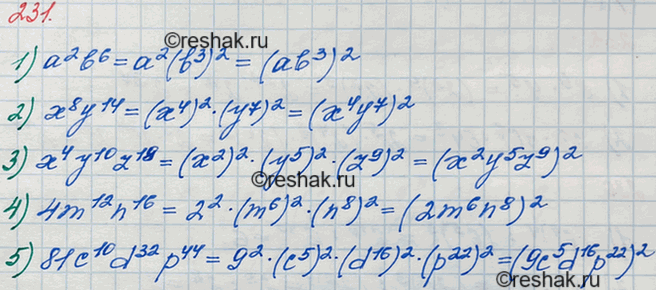 231.
©reshak.ru
1) a²b⁶ = a²(b³)² = (ab³)²
2) x⁸y¹⁴ = (x⁴)²·(y⁷)² = (x⁴y⁷)²
3) x⁴y¹⁰z¹⁸ = (x²)²·(y⁵)²·(z⁹)² = (x²y⁵z⁹)²
©reshak.ru
4) 4m¹²n¹⁶ = 2²·(m⁶)²·(n⁸)² = (2m⁶n⁸)²
5) 81c¹⁰d³²p⁴⁴ = 9²·(c⁵)²·(d¹⁶)²·(p²²)² = (9c⁵d¹⁶p²²)²